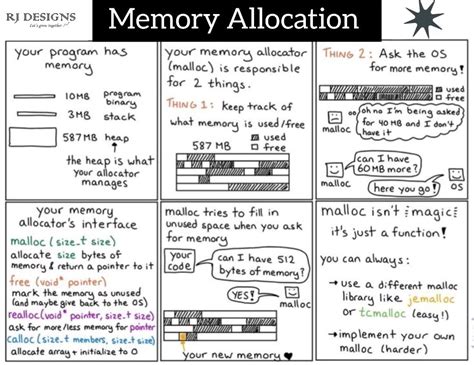 RJ DESIGNS
Let's grow together
Memory Allocation
your program has
memory
10MB program
binary
3MB stack
587MB heap
the heap is what
your allocator
manages
your memory allocator
(malloc) is responsible
for 2 things.
THING 1: keep track of
what memory is used/free
587 MB
used
free
THING 2: Ask the OS
for more memory!
used
free
malloc
oh no I'm being asked
for 40 MB and I don't
have it
can I have
60 MB more?
malloc
here you go!
OS
your memory
allocator's interface
malloc (size_t size)
allocate size bytes of
memory & return a pointer to it
free (void* pointer)
mark the memory as unused
(and maybe give back to the OS)
realloc(void* pointer, size_t size)
ask for more/less memory for pointer
calloc (size_t members, size_t size)
allocate array + initialize to 0
malloc tries to fill in
unused space when you ask
for memory
your
code
can I have 512
bytes of memory?
YES!
malloc
your new memory
malloc isn't magic!
it's just a function!
you can always:
→ use a different malloc
library like jemalloc
or tcmalloc (easy!)
→ implement your own
malloc (harder)